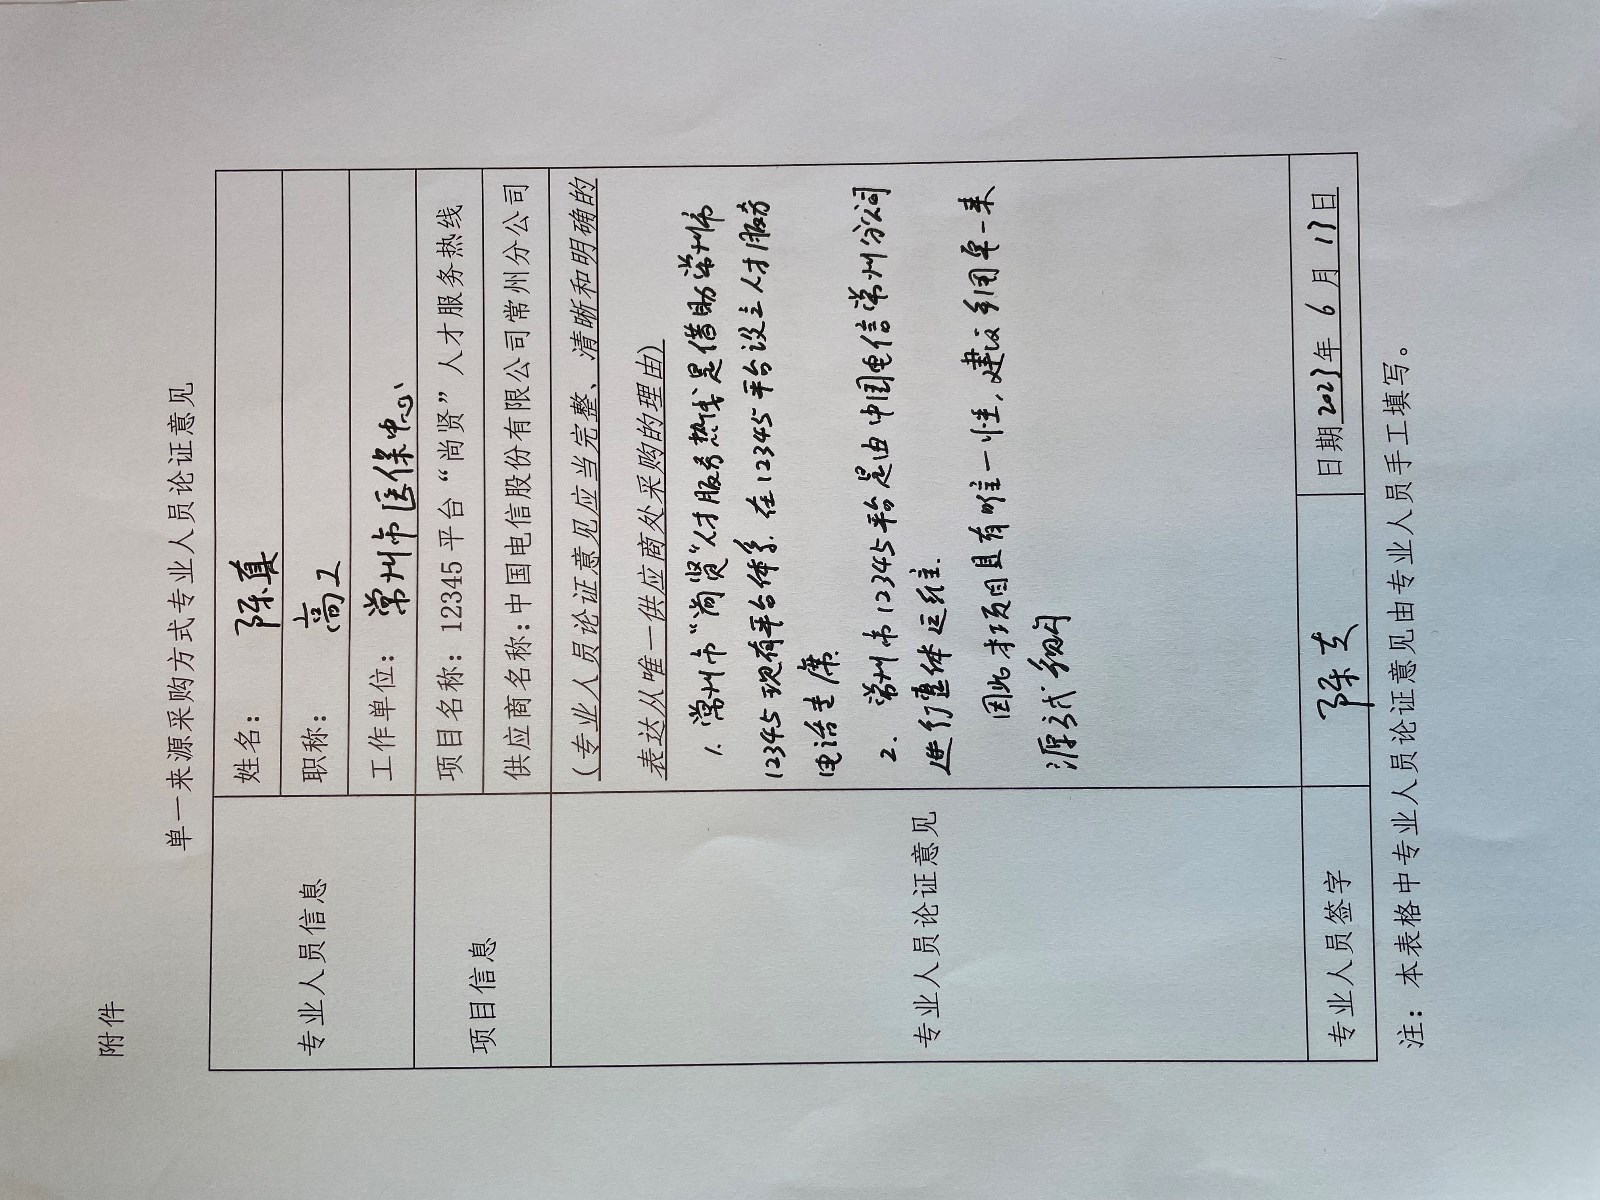 附件
单一来源采购方式专业人员论证意见
专业人员信息
姓名： 陈真
职称： 高工
工作单位： 常州市医保中心
项目信息
项目名称：12345平台“尚贤”人才服务热线
供应商名称：中国电信股份有限公司常州分公司
专业人员论证意见
（专业人员论证意见应当完整、清晰和明确的
表达从唯一供应商处采购的理由）
1. 常州市“尚贤”人才服务热线是借助常州市
12345现有平台体系，在12345平台设立人才服务
电话坐席.
2. 常州市12345平台是由中国电信常州分公司
进行整体运维.
因此本项目具有唯一性，建议采用单一来
源方式采购
专业人员签字
陈
日期 2023年 6 月 17日
注：本表格中专业人员论证意见由专业人员手工填写。